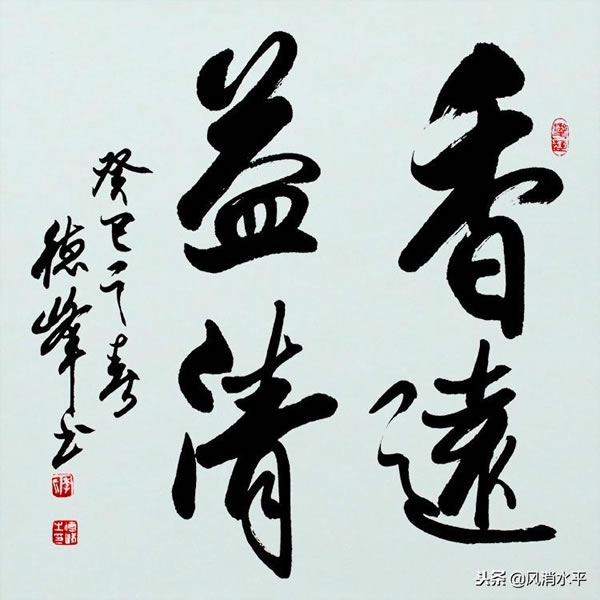 香遠
益清
癸巳之春
德峯书
头条 @风消水平